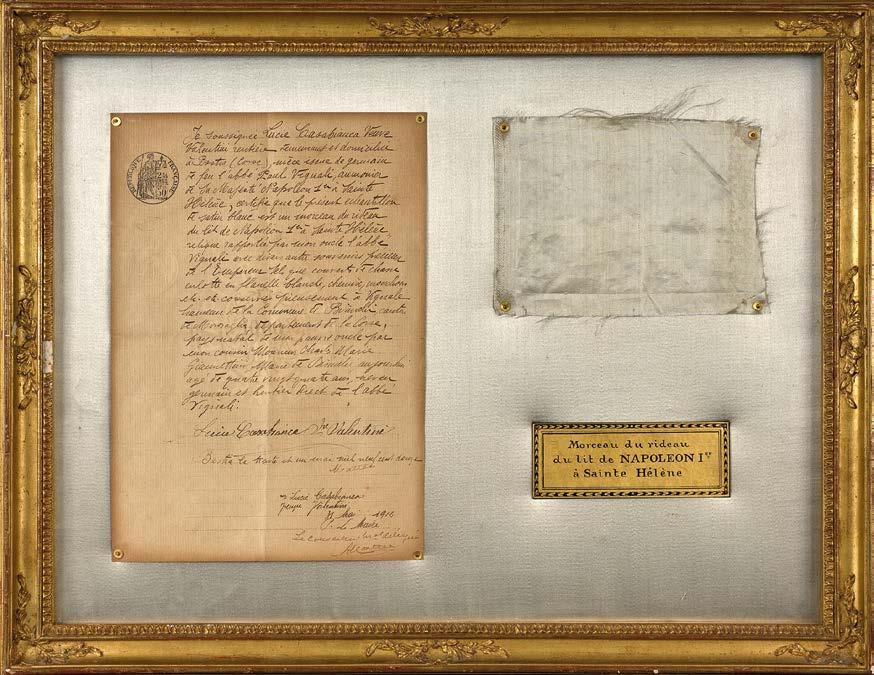 Je soussignée Lucie Casabianca Veuve
Valentini rentière demeurant et domiciliée
à Bastia (Corse), nièce issue de germain
de feu l'abbé Paul Vignali, aumônier
de Sa Majesté Napoléon 1er à Sainte
Hélène, certifie que le présent échantillon
de satin blanc est un morceau du rideau
du lit de Napoléon 1er à Sainte Hélène"
relique rapportée par mon oncle l'abbé
Vignali avec divers autres souvenirs
de l'Empereur tel que couvert, de chasse
culotte en flanelle blanche, chemise, mouchoirs
etc. et conservée pieusement à Vignale
hameau de la Commune de canton
de Morosaglia, département de la Corse,
pays natal de mon oncle par
mon cousin Monsieur Charles Marie
Gianettini, Maire de aujourd'hui
âgé de quatre vingt quatre ans, neveu
germain et héritier direct de l'abbé
Vignali.
Lucie Casabianca Ve Valentini
Bastia le trente et un mai mil neuf cent douze
Lucie Casabianca
Valentini
31 Mai 1912
P. le Maire
Le Conseiller Mal délégué
REPUBLIQUE FRANÇAISE
Morceau du rideau
du lit de NAPOLEON Ier
à Sainte Hélène